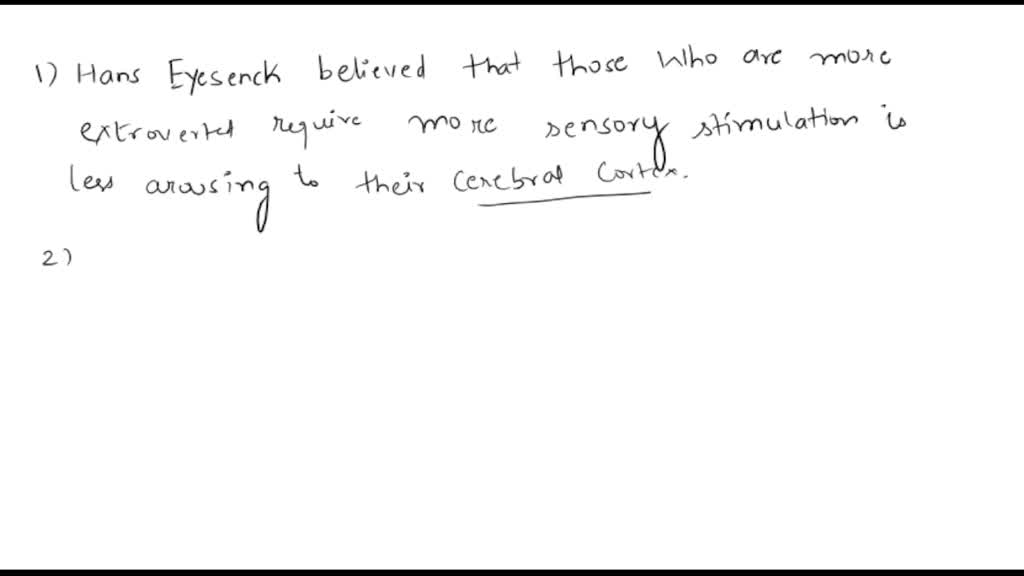 1) Hans Eyesenck believed that those who are more
extroverted require more sensory stimulation is
less arousing to their cerebral cortex.
2)